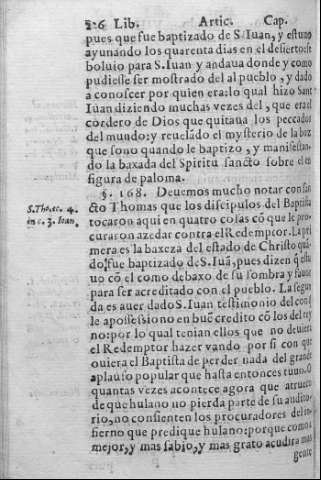 36 Lib. Artic. Cap.
pues que fue baptizado de S. Iuan, y estuuo
ayunando los quarenta dias en el desierto se
boluio para S. Iuan y andaua donde y como
pudiesse ser mostrado del al pueblo, y dado
a conoscer por quien era: lo qual hizo Sant
Iuan diziendo muchas vezes del, que era el
cordero de Dios que quitaua los peccados
del mundo: y reuelado el mysterio de la boz
que sono quando le baptizo, y manifestan-
do la baxada del Spiritu sancto sobre el en
figura de paloma.
§. 168. Deuemos mucho notar con san
S. Tho. ec. 4. in c. 3. Ioan.
cto Thomas que los discipulos del Baptista
tocaron aqui en quatro cosas cõ que le pro-
curaron azedar contra el Redemptor. La pri
mera es la baxeza del estado de Christo quã-
do fue baptizado de S. Iuã, pues dizen q̃ estu
uo cõ el como debaxo de su sombra y fauor
para ser acreditado con el pueblo. La segun
da es auer dado S. Iuan testimonio del con q̃
le apossessiono en buẽ credito cõ los del rey
no: por lo qual tenian ellos que no deuiera
el Redemptor hazer vando por si con que
ouiera el Baptista de perder nada del grande
aplauso popular que hasta entonces tuuo. O
quantas vezes acontece agora que a trueco
de que hulano no pierda parte de su audito-
rio, no consienten los procuradores del in-
fierno que predique hulano: porque como
mejor, y mas sabio, y mas grato acudira mas
gente